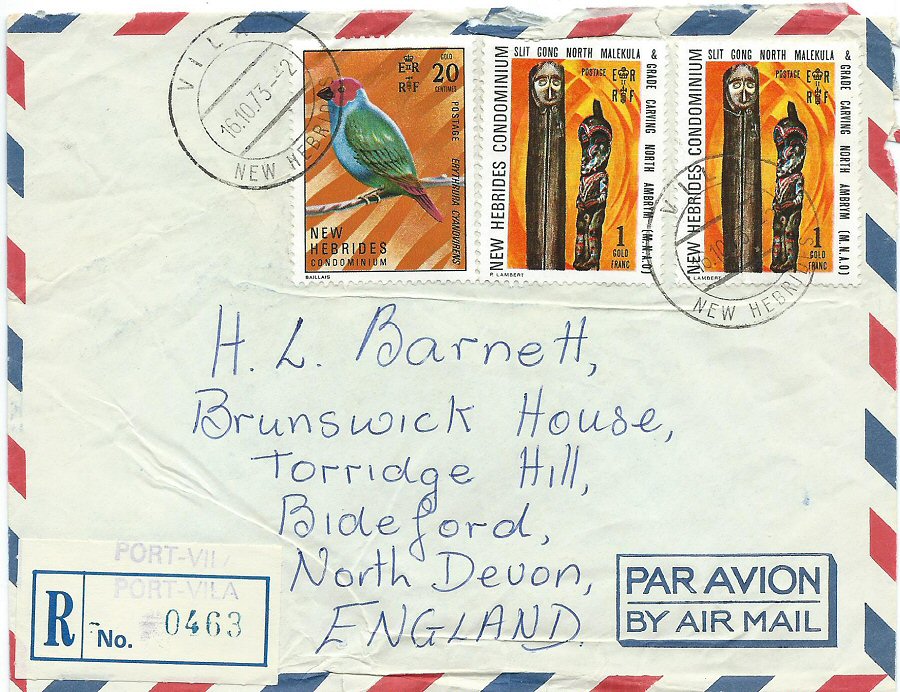 VILA
16.10.73.-2
NEW HEBRIDES
E II R
R F
GOLD
20
CENTIMES
POSTAGE ERYTHRURA CYANOVIRENS
NEW
HEBRIDES
CONDOMINIUM
BAILLAIS
SLIT GONG NORTH MALEKULA &
GRADE CARVING NORTH AMBRYM (M.N.A.O)
NEW HEBRIDES CONDOMINIUM
POSTAGE
E II R
R F
1
GOLD
FRANC
P. LAMBERT
SLIT GONG NORTH MALEKULA &
GRADE CARVING NORTH AMBRYM (M.N.A.O)
NEW HEBRIDES CONDOMINIUM
POSTAGE
E II R
R F
1
GOLD
FRANC
P. LAMBERT
VILA
16.10.73
NEW HEBRIDES
H. L. Barnett,
Brunswick House,
Torridge Hill,
Bideford,
North Devon,
ENGLAND.
PORT-VILA
PORT-VILA
R
No. 0463
PAR AVION
BY AIR MAIL